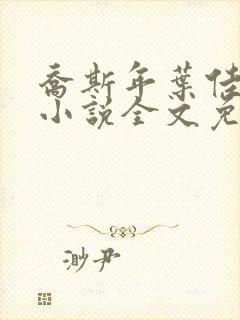 乔斯年葉佳
小説全文免
渺尹